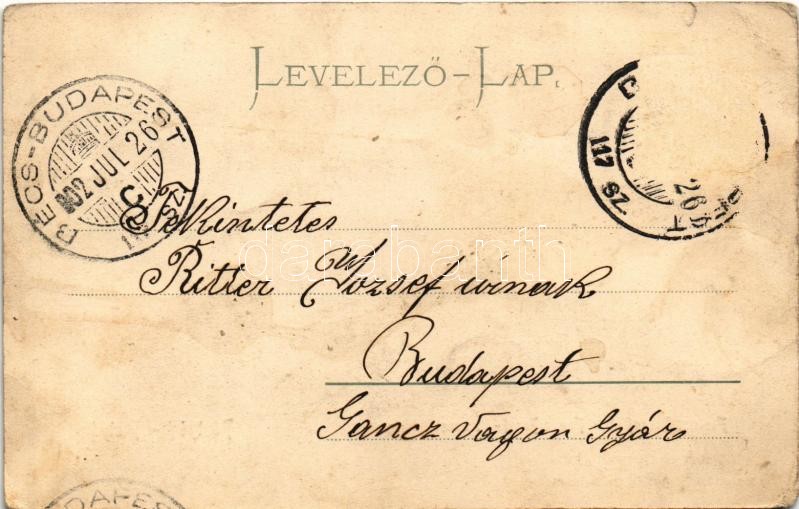 LEVELEZŐ-LAP.
BÉCS-BUDAPEST
902 JUL 26
C
117 SZ
26
Tekintetes
Ritter József úrnak
Budapest
Gancz Vagon Gyár
darabanth